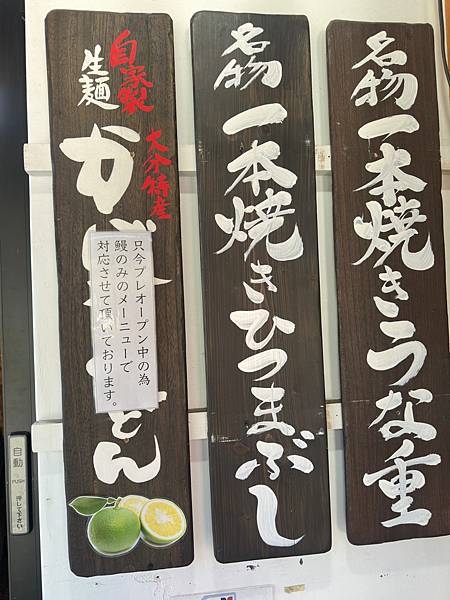 名物
一本焼きうな重
名物
一本焼きひつまぶし
自家製
生麺
大分特産
か
どん
只今プレオープン中の為
鰻のみのメーニューで
対応させて頂いております。
自動
PUSH
押して下さい